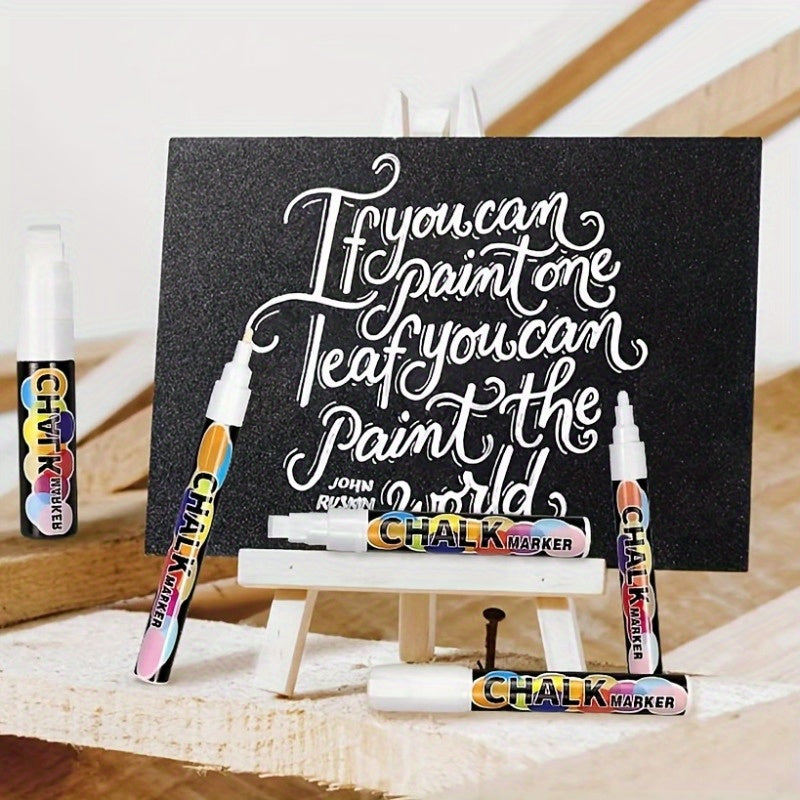 If you can
paint one
leaf you can
paint the
world
JOHN
RUSKIN
CHALK MARKER
CHALK MARKER
CHALK MARKER
CHALK MARKER
CHALK MARKER